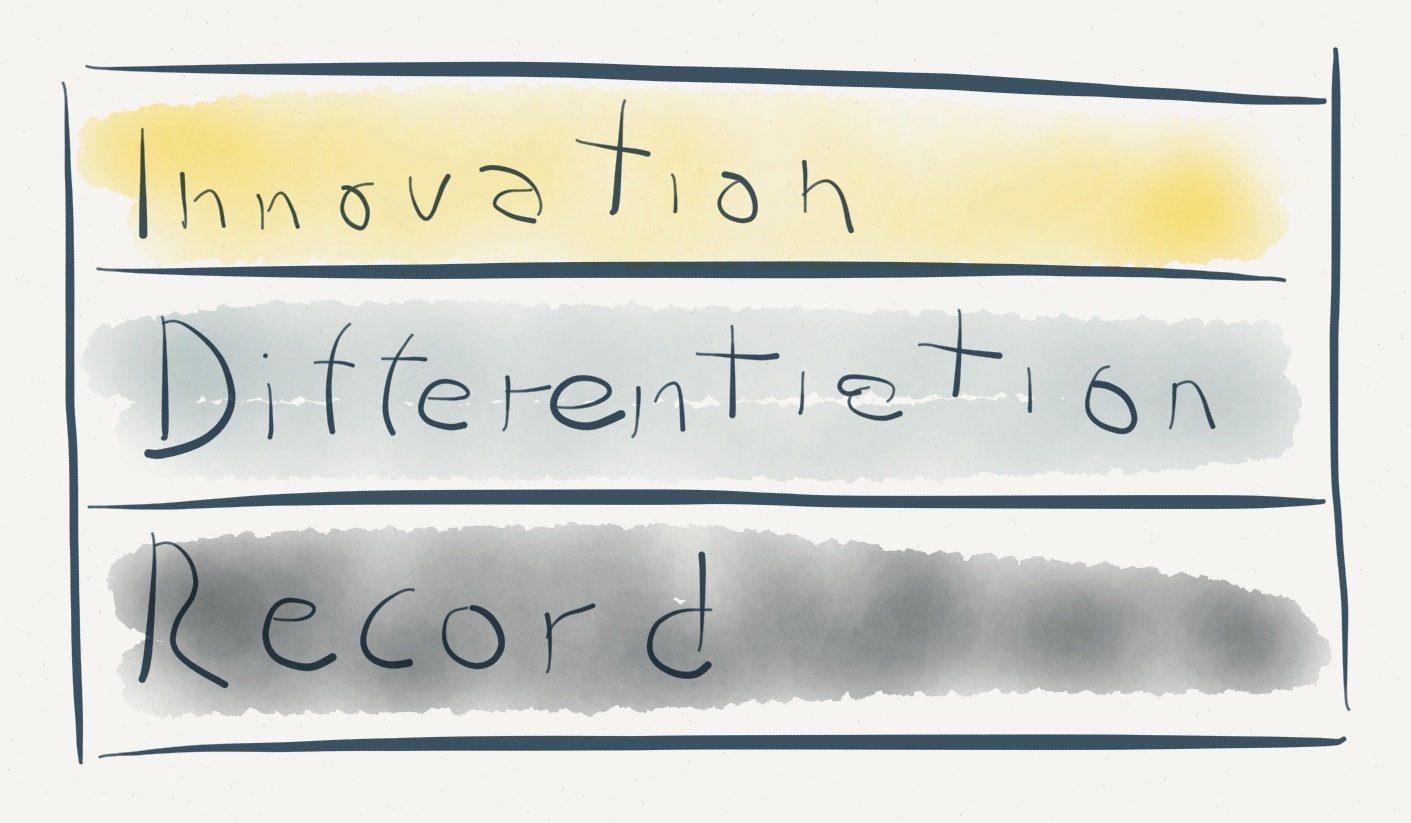 Innovation
Differentiation
Record